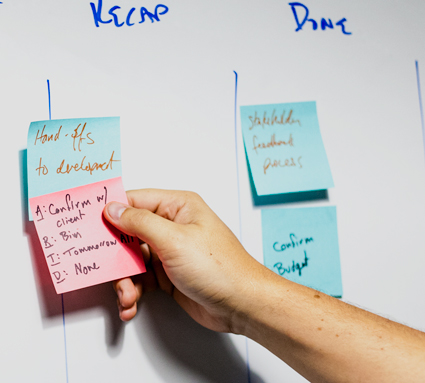 RECAP
DONE
Hand-offs
to development
A: Confirm w/
client
R: Bin
T: Tommorrow
D: None
Stakeholder
feedback
process
Confirm
Budget